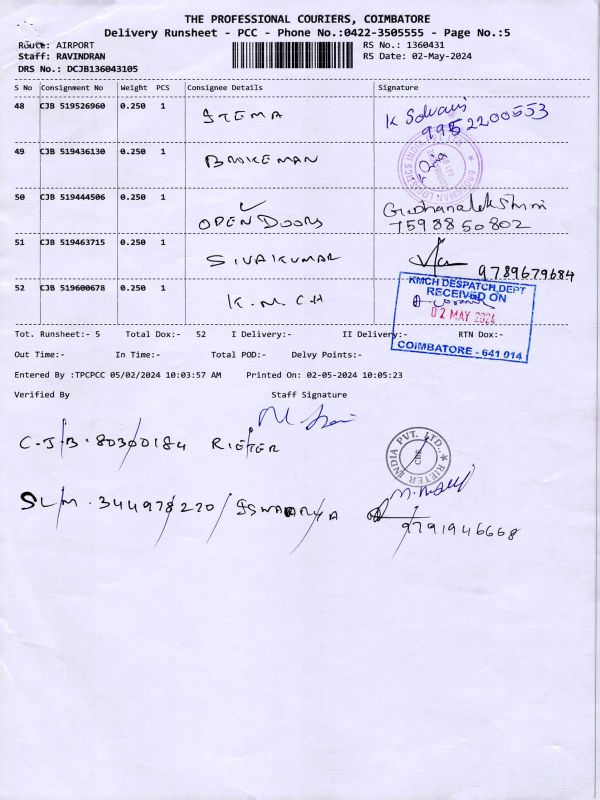 THE PROFESSIONAL COURIERS, COIMBATORE
Delivery Runsheet - PCC - Phone No.:0422-3505555 - Page No.:5
Route: AIRPORT RS No.: 1360431
Staff: RAVINDRAN RS Date: 02-May-2024
DRS No.: DCJB136043105
S No Consignment No Weight PCS Consignee Details Signature
48 CJB 519526960 0.250 1 STEMA K Selvani
9952200553
49 CJB 519436130 0.250 1 BROKEMAN
50 CJB 519444506 0.250 1 OPEN DOORS Gudhanalekshmi
7598850802
51 CJB 519463715 0.250 1 SIVAKUMAR 9789679684
52 CJB 519600678 0.250 1 K.M.C.H
KMCH DESPATCH DEPT
RECEIVED ON
02 MAY 2024
COIMBATORE - 641 014
Tot. Runsheet:- 5 Total Dox:- 52 I Delivery:- II Delivery:- RTN Dox:-
Out Time:- In Time:- Total POD:- Delvy Points:-
Entered By :TPCPCC 05/02/2024 10:03:57 AM Printed On: 02-05-2024 10:05:23
Verified By Staff Signature
C.J.B. 80300184 RIETER
RIETER INDIA PVT. LTD.
CBE
SLM. 344978270 ISWARYA
9791946668